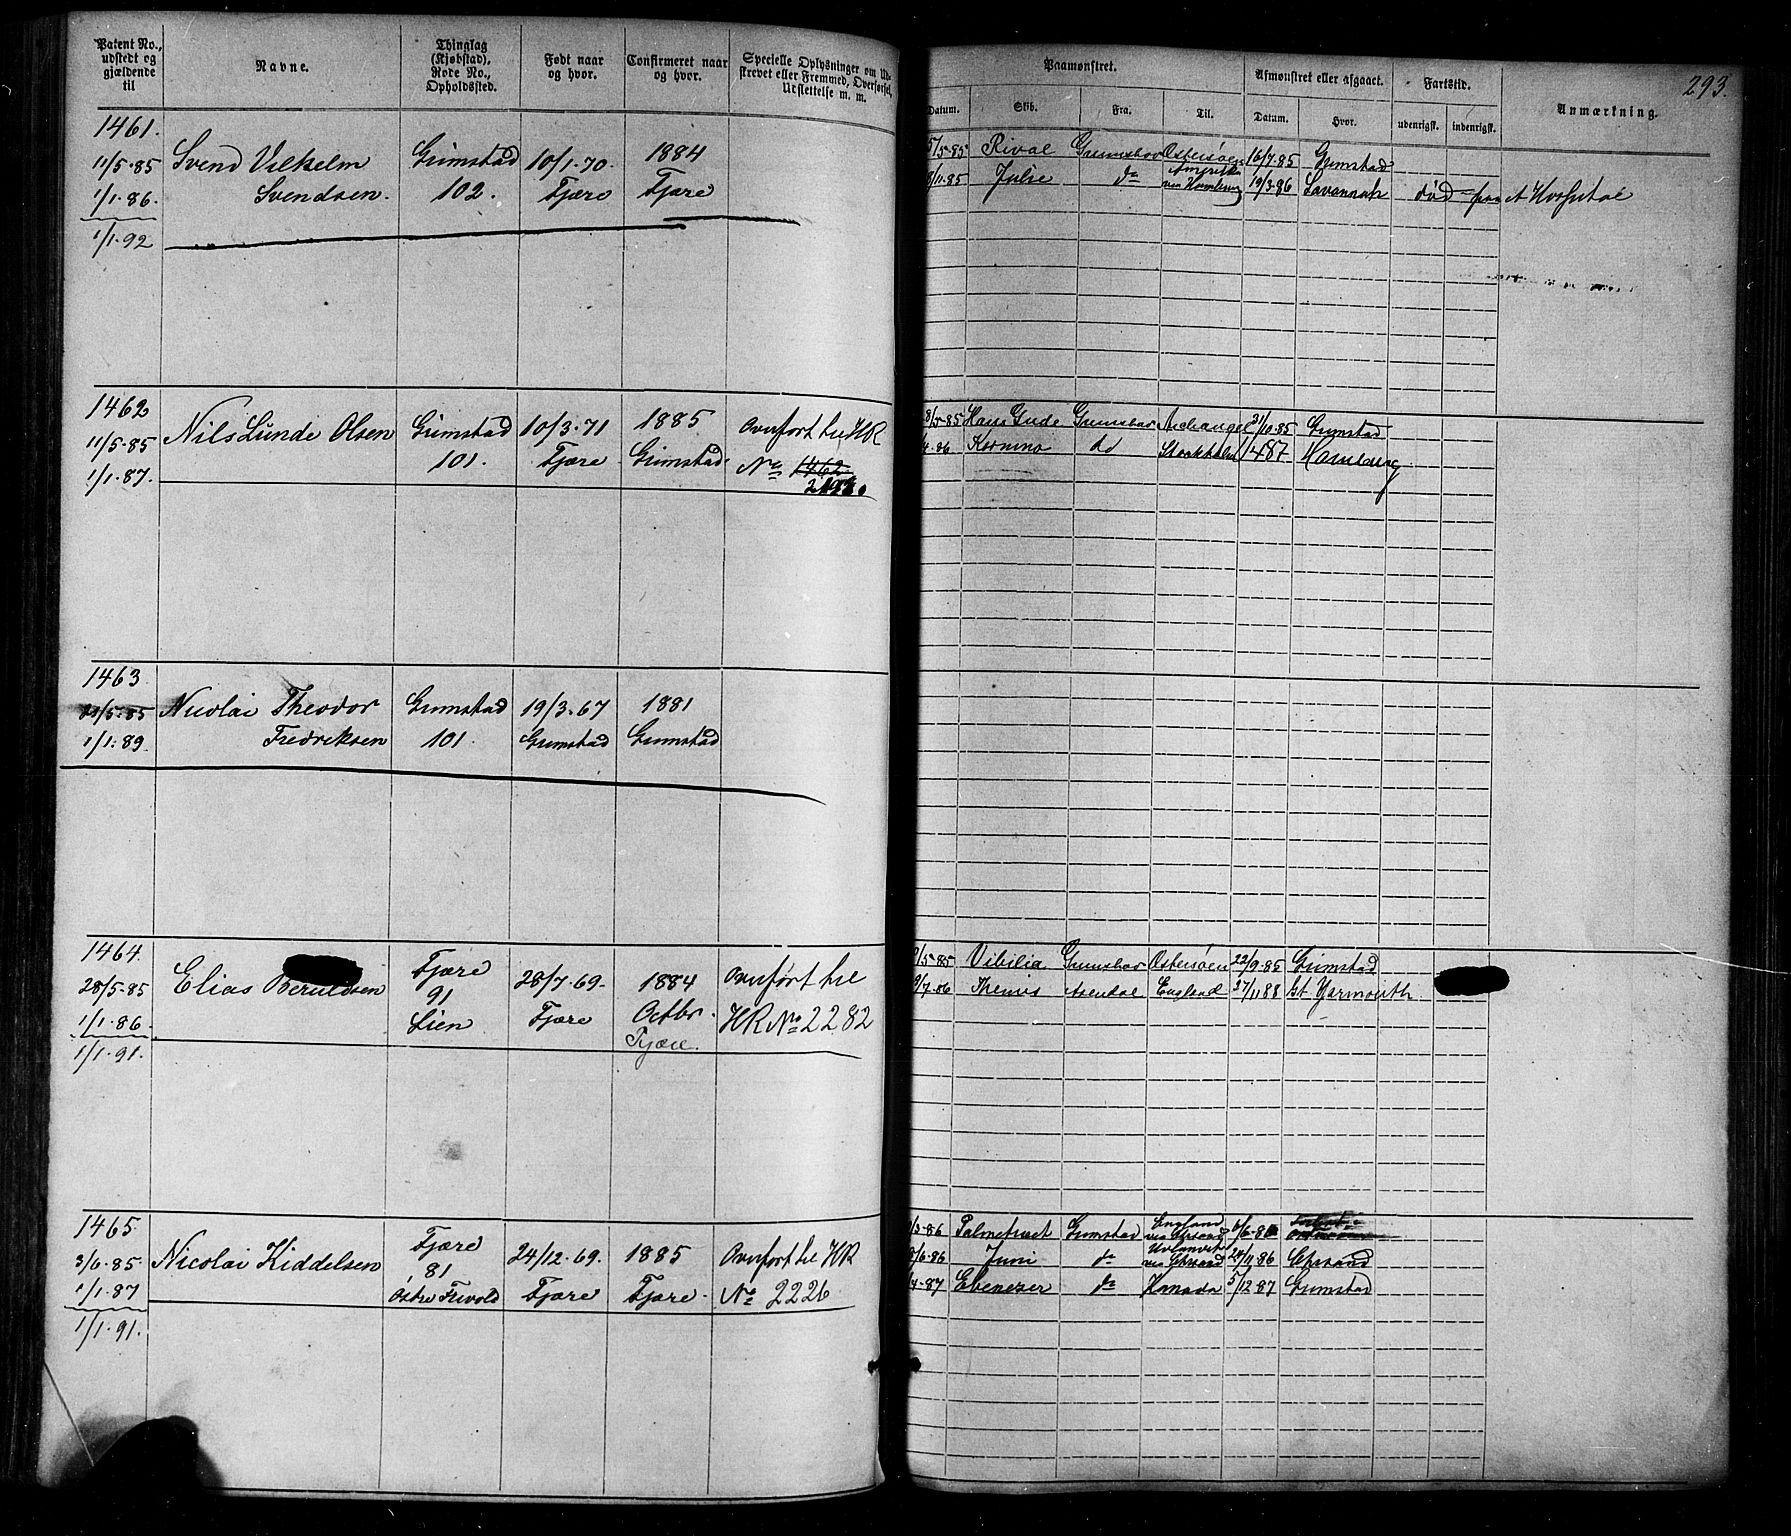 Patent No., udstedt og gjældende til
Navne.
Thinglag (Kjøbstad), Rode No., Opholdssted.
Født naar og hvor.
Confirmeret naar og hvor.
Specielle Oplysninger om Udskrevet eller Fremmed, Overførsel, Udslettelse m. m.
Paamønstret.
Afmønstret eller afgaaet.
Fartstid.
Anmærkning.
293.
Datum.
Skib.
Fra.
Til.
Datum.
Hvor.
udenrigsk.
indenrigsk.
1461.
11/5-85 Svend Vilhelm Grimstad 10/1-70 1884
1/1-86. Svendsen. 102. Fjære Fjære
1/1-92
5/5-85 Rival Grimstad Østersøen 16/7-85 Grimstad
8/11-85 Julie do Amerika via Hamburg 19/3-86 Savannah død paa et Hospital
1462
11/5-85 Nils Lunde Olsen Grimstad 10/3-71 1885. Overført til HR
1/1-87. 101. Fjære Grimstad. No 1462
8/5-85 Hans Gude Grimstad Archangel 31/10-85 Grimstad
4-86 do Stockholm 1/4 87 Hamburg
1463
21/5-85 Nicolai Theodor Grimstad 19/3-67 1881
1/1-89. Fredriksen 101. Grimstad Grimstad
1464
28/5-85 Elias Beruldsen Fjære 28/7-69. 1884 Overført til
1/1-86 91 Fjære Octbr. HR No 2282
1/1-91. Lien Fjære.
/5-85 Vibilia Grimstad Østersøen 22/9-85 Grimstad
9/7-86 Arendal England 27/11 88 Gt Yarmouth.
1465
3/6-85 Nicolai Kiddelsen Fjære 24/12-69. 1885 Overført til HR
1/1-87 81 Fjære Fjære. No 2226
1/1-91. Østre Frivold
/3-86 Palmetruct Grimstad England via 6/6-86
/6-86 Juni do via Chrsand 24/11-86 Chrsand
/4-87 Ebeneser do Kanada 5/12-87 Grimstad